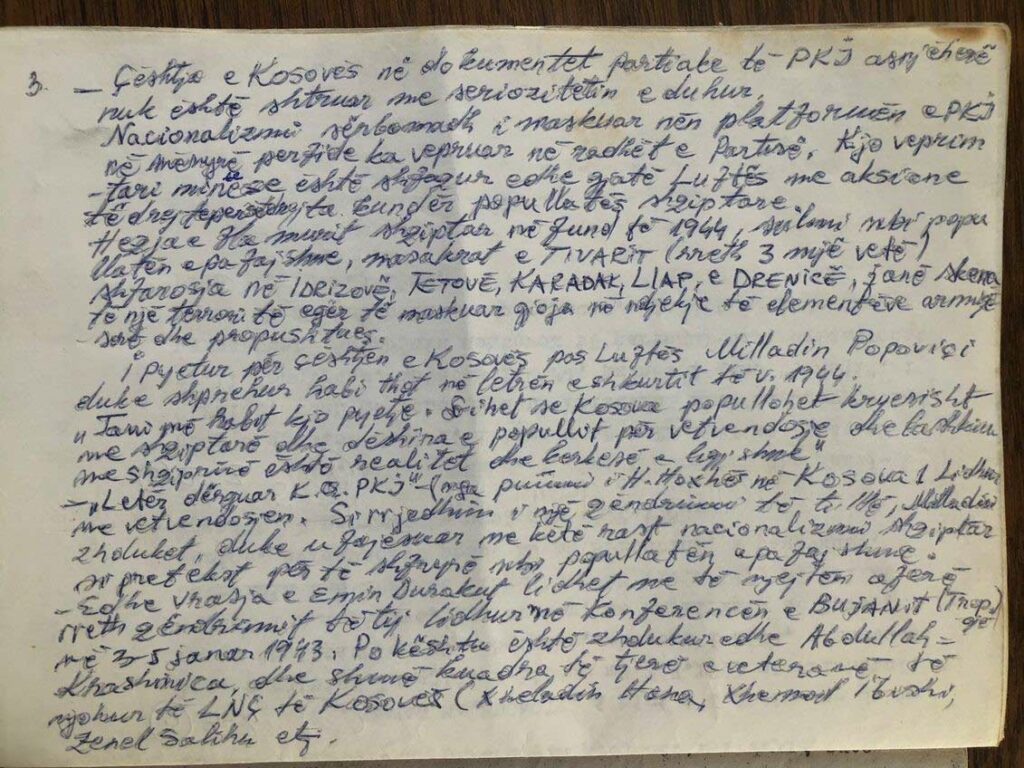 3. — Çështja e Kosovës në dokumentet partiake të PKJ asnjëherë
nuk është shtruar me seriozitetin e duhur.
Nacionalizmi sërbomadh i maskuar nën platformën e PKJ
në menyrë perfide ka vepruar në radhët e Partisë. Kjo veprim
-tari minuese është shfaqur edhe gjatë Luftës me aksione
të drejtpërdrejta kundër popullatës shqiptare.
Hegjae Ha murit shqiptar në fund të 1944, sulmi mbi popu
llatën e pafajshme, masakrat e TIVARIT (rreth 3 mijë vetë)
shfarosja në IDRIZOVË, TETOVË, KARADAK, LLAP, e DRENICË, janë skena
të një terrori të egër të maskuar gjoja në ndjekje të elementëve armiqë
sorë dhe propushtues.
i pyetur për çështjen e Kosovës pas Luftës Milladin Popoviçi
duke shprehur habi thot në letrën e shkurtit të v. 1944.
„Tani më habit kjo pyetje. Dihet se Kosova popullohet kryesisht
me shqiptarë dhe dëshira e popullit për vetvendosje dhe bashkim
me shqiprinë është realitet dhe kerkesë e ligjshme"
— „Letër dërguar K.Q. PKJ" (nga punimi i H. Hoxhës në Kosova 1 Lidhur
me vetvendosjen. Si rrjedhim i një qëndrimi të tillë, Milladini
zhduket, duke u fajësuar me këtë rast nacionalizmi shqiptar
si pretekst për të shfryrë mbi popullatën e pafajshme.
- Edhe vrasja e Emin Durakut lidhet me të njejtën aferë
rreth qëndrimit të tij lidhur në Konferencën e BUJANIT (Trop
gjë)
më 3-5 janar 1943. Po kështu është zhdukur edhe Abdullah
Krashnica, dhe shumë kuadra të tjerë e veteranë të
njohur të LNÇ të Kosovës (Xheladin Hana, Xhemail
Zenel Salihu etj.